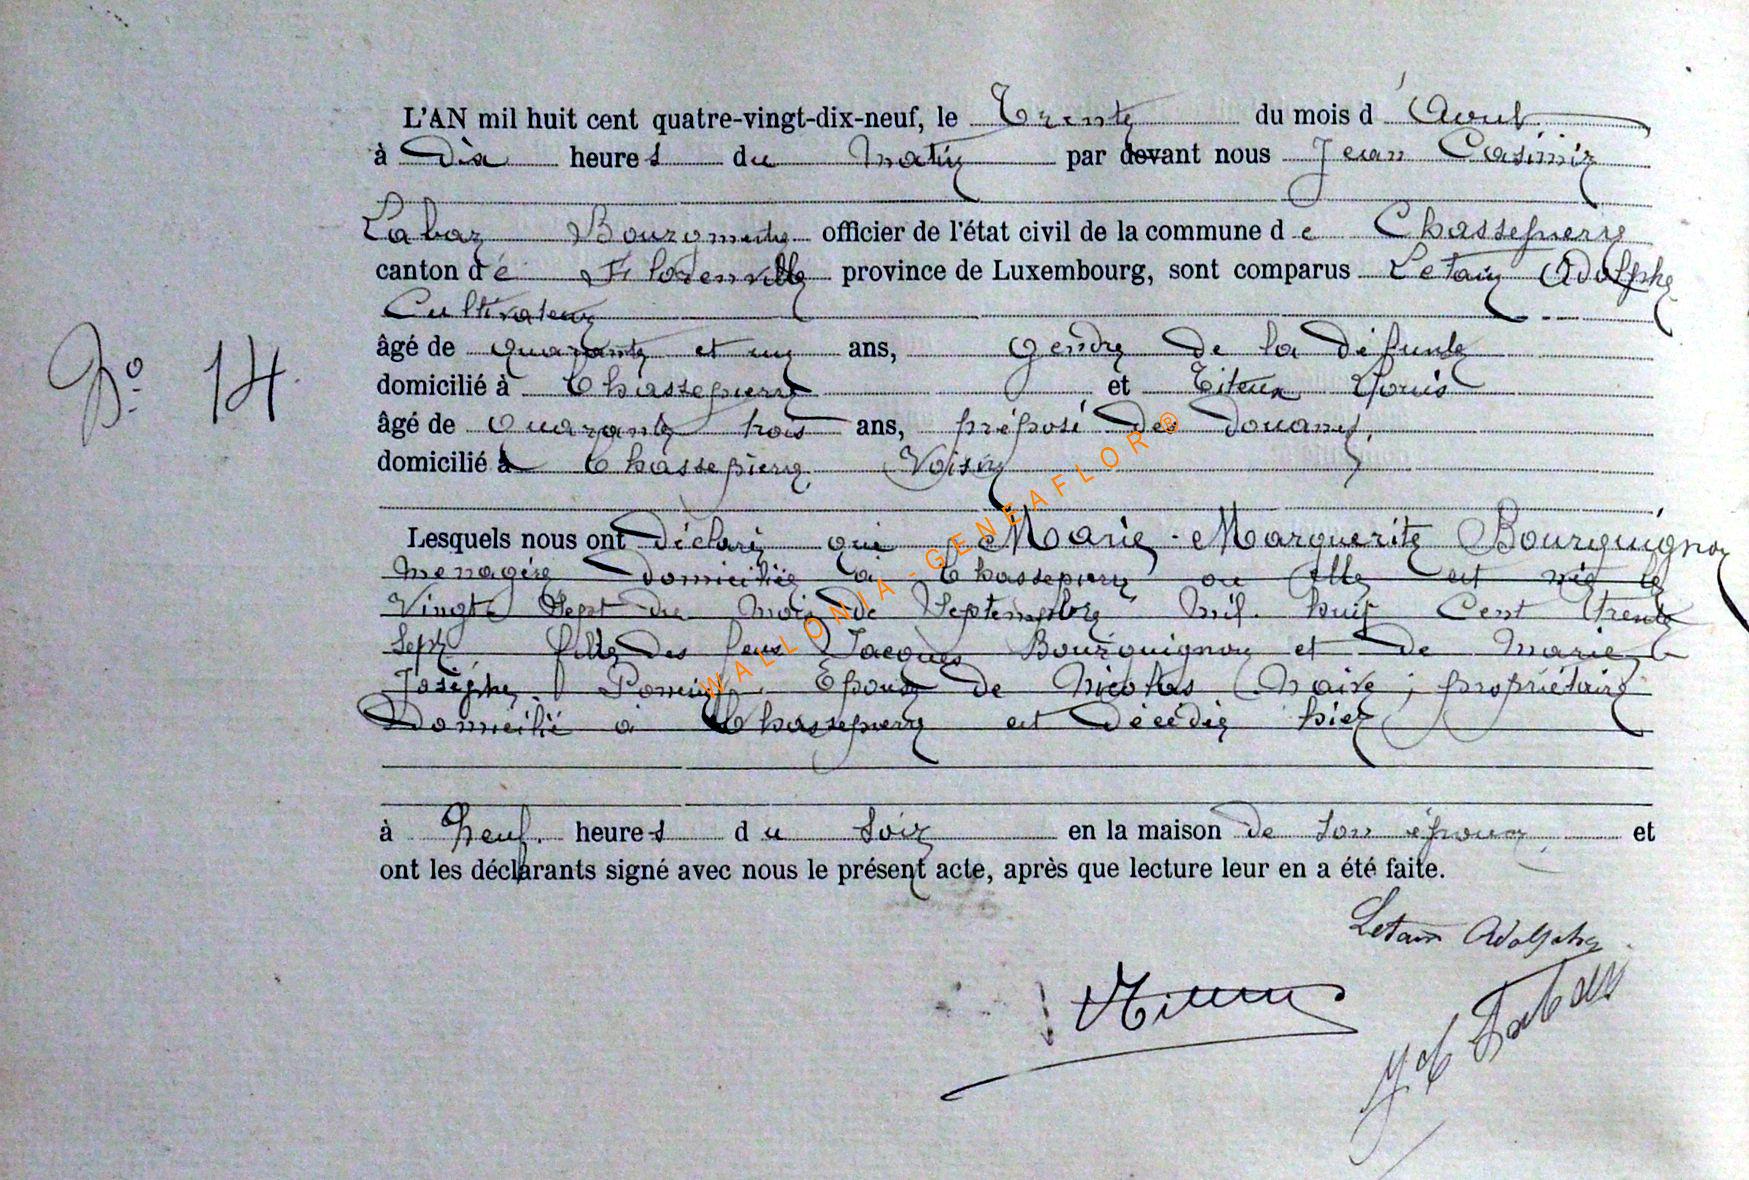 L'AN mil huit cent quatre-vingt-dix-neuf, le Trente du mois d'Aout
à Dix heures du Matin par devant nous Jean Casimir
Labaz Bourgmestre officier de l'état civil de la commune de Chassepierre
canton de Florenville province de Luxembourg, sont comparus Letain Adolphe
Cultivateur
âgé de quarante et un ans, gendre de la défunte
domicilié à Chassepierre et Titeux Louis
âgé de quarante trois ans, préposé des douanes,
domicilié à Chassepierre, Voisin
N° 14.
Lesquels nous ont déclaré que Marie-Marguerite Bourguignon
Menagère domiciliée à Chassepierre ou elle est née le
Vingt Sept du mois de Septembre mil huit Cent trente
Sept fille des feus Jacques Bourguignon et de Marie
Josèphe Epouse de Nicolas Maire, propriétaire
Domicilié à Chassepierre est décédée hier
à neuf heures du Soir en la maison de son époux, et
ont les déclarants signé avec nous le présent acte, après que lecture leur en a été faite.
Letain Adolphe
WALLONIA-GENEAFLOR ®